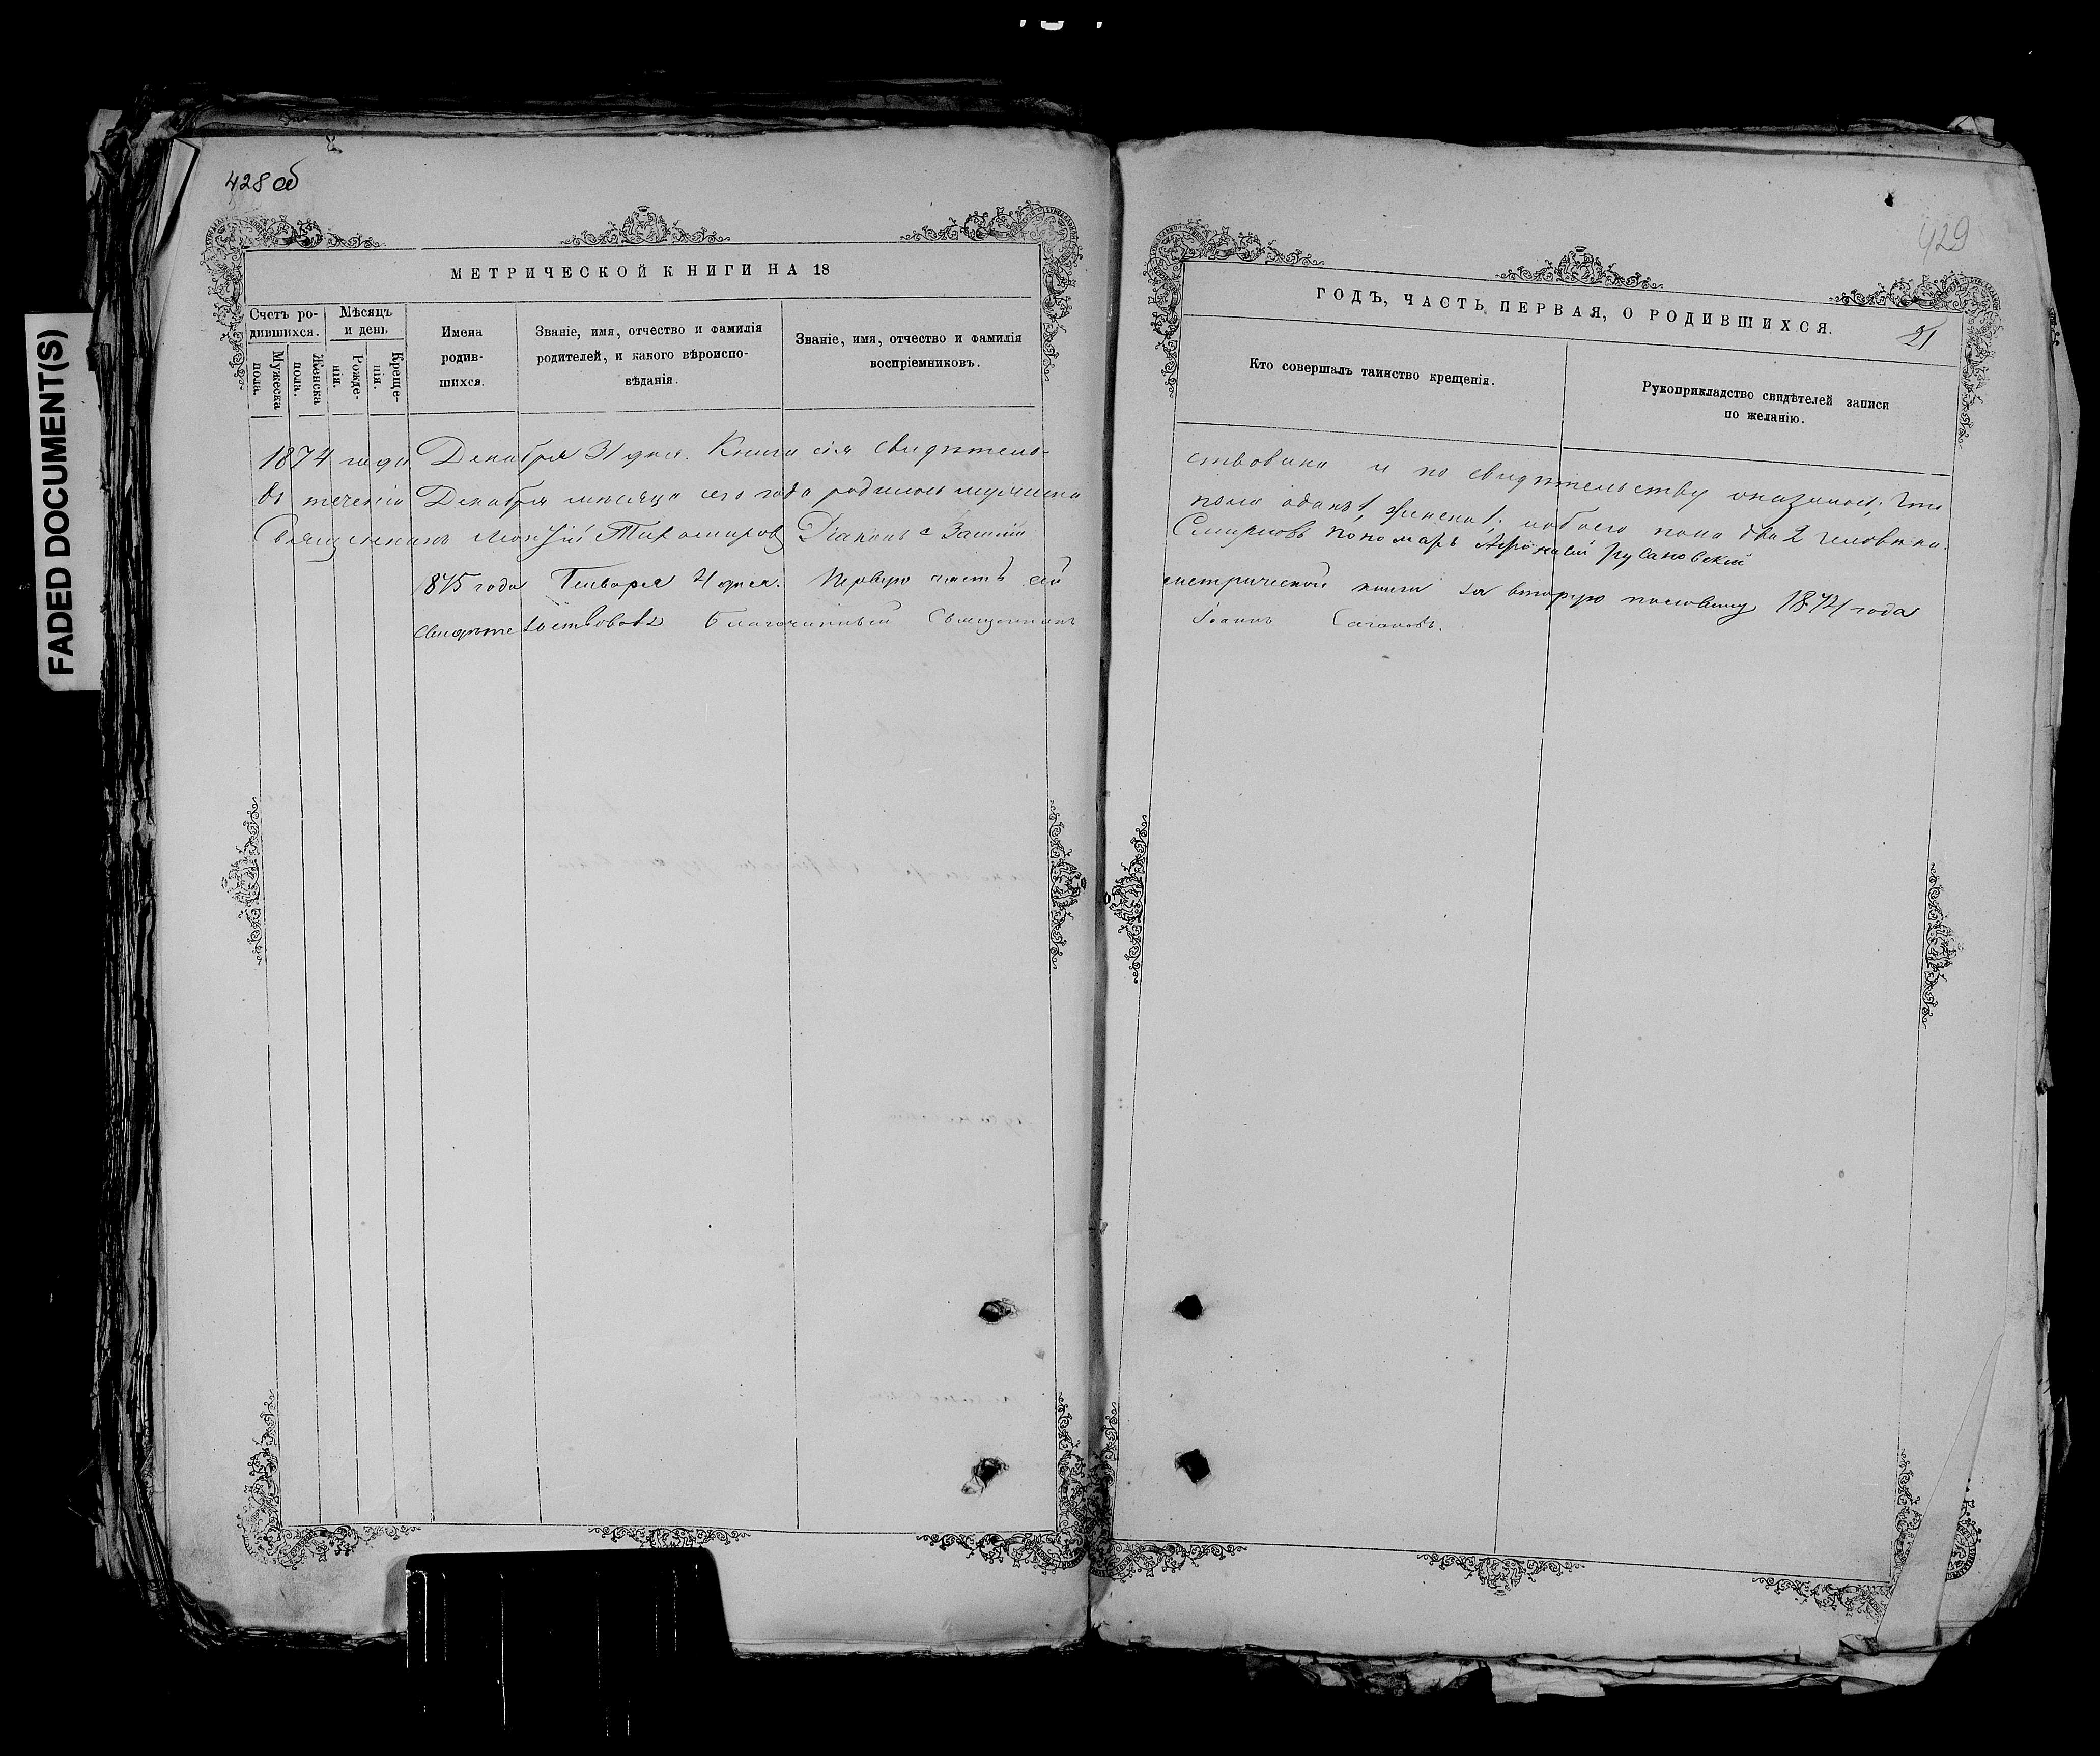 FADED DOCUMENT(S)
428 об
МЕТРИЧЕСКОЙ КНИГИ НА 18
Счетъ ро-
дившихся.
Мужеска
пола.
Женска
пола.
Мѣсяцъ
и день
Рожде-
нія.
Креще-
нія.
Имена
родив-
шихся.
Званіе, имя, отчество и фамилія
родителей, и какого вѣроиспо-
вѣданія.
Званіе, имя, отчество и фамилія
воспріемниковъ.
1874 года Декабря 31 дня. Книга сія свидѣтель-
въ теченіи Декабря мѣсяца сего года родилось мужеска
Священникъ Тихомировъ Діаконъ
1875 года Генваря 4 дня. Первую часть сей
свидѣтельствовалъ Благочинный Священникъ
429
ГОДЪ, ЧАСТЬ ПЕРВАЯ, О РОДИВШИХСЯ.
21
Кто совершалъ таинство крещенія.
Рукоприкладство свидѣтелей записи
по желанію.
ствована и по свидѣтельству оказалось, что
пола одинъ 1, женска 1, обоего пола два 2 человѣка.
Смирновъ Пономарь Русановскій
метрической книги за вторую половину 1874 года
Іоаннъ